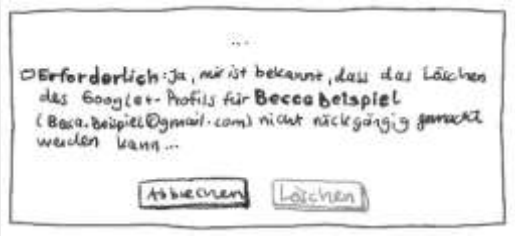 ...
Erforderlich: Ja, mir ist bekannt, dass das Löschen
des Google+-Profils für Becca Beispiel
(Becca.Beispiel@gmail.com) nicht rückgängig gemacht
werden kann...
Abbrechen Löschen